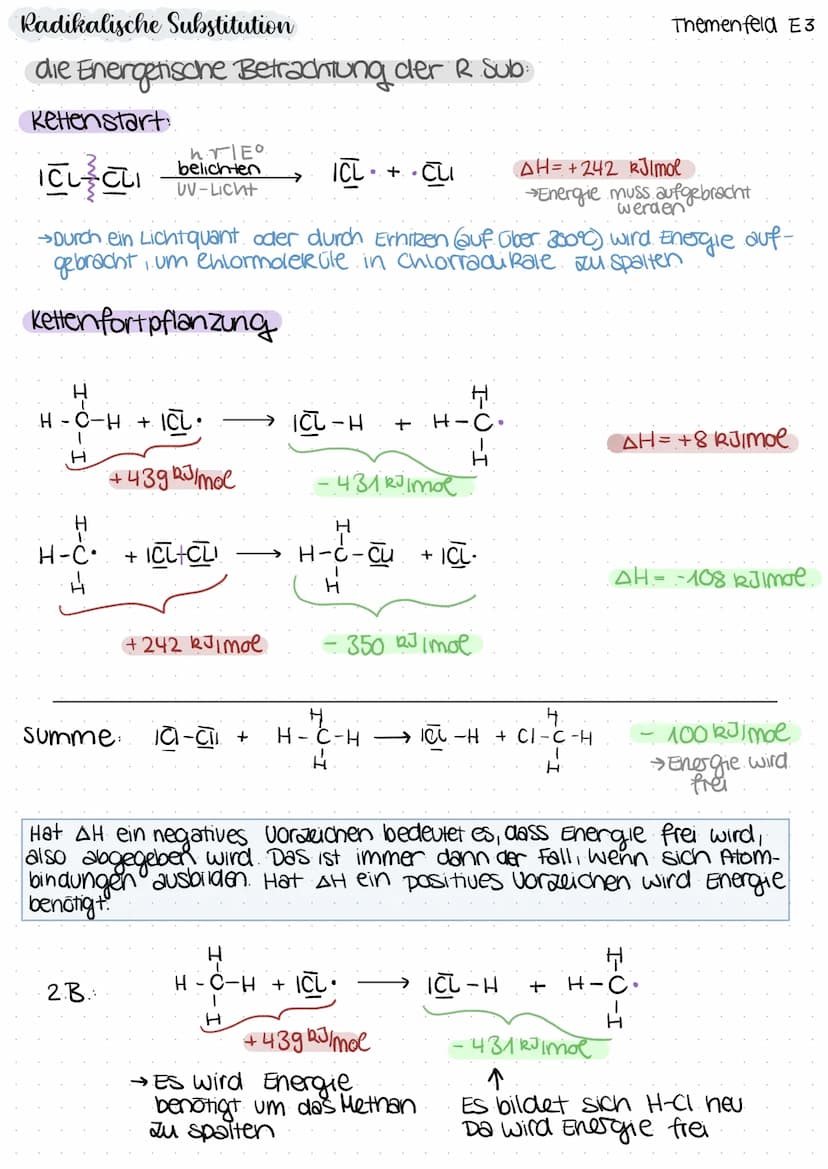 Radikalische Substitution
Themenfeld E3
die Energetische Betrachtung der R.Sub:
Kettenstart:
h·ν/E°
|C̅l̲ ⌇ C̅l̲| belichten → |C̅l̲· + ·C̅l̲| ΔH= +242 kJ/mol
UV-Licht
→Energie muss aufgebracht
werden
→Durch ein Lichtquant oder durch Erhitzen (auf über 300°C) wird Energie auf-
gebracht, um Chlormoleküle in Chlorradikale zu spalten
Kettenfortpflanzung
H
H
H-C-H + |C̅l̲· → |C̅l̲-H + H-C·
ΔH= +8 kJ/mol
H
H
+439 kJ/mol
-431 kJ/mol
H
H
H-C· + |C̅l̲-C̅l̲| → H-C-C̅l̲| + |C̅l̲·
H
H
ΔH= -108 kJ/mol
+242 kJ/mol
- 350 kJ/mol
H
H
Summe: |C̅l̲-C̅l̲| + H-C-H → |C̅l̲-H + Cl-C-H
- 100 kJ/mol
H
H
→Energie wird
frei
Hat ΔH ein negatives Vorzeichen bedeutet es, dass Energie frei wird,
also abgegeben wird. Das ist immer dann der Fall, wenn sich Atom-
bindungen ausbilden. Hat ΔH ein positives Vorzeichen wird Energie
benötigt.
H
H
z.B.: H-C-H + |C̅l̲· → |C̅l̲-H + H-C·
H
H
+439 kJ/mol
-431 kJ/mol
→ Es wird Energie
benötigt um das Methan
zu spalten
↑
Es bildet sich H-Cl neu
Da wird Energie frei